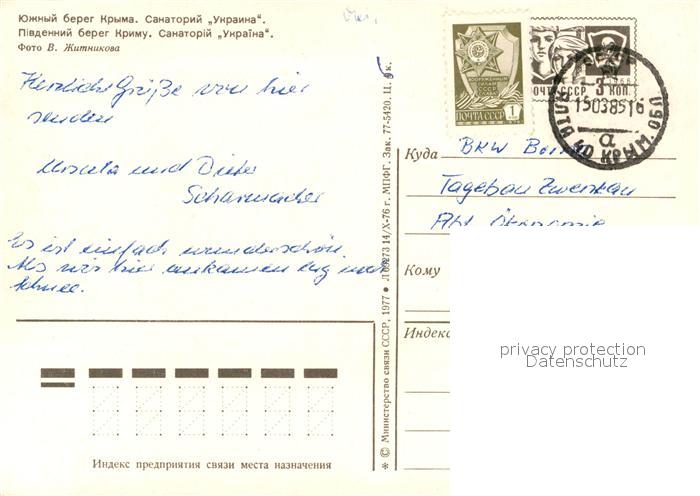 Южный берег Крыма. Санаторий „Украина".
Південний берег Криму. Санаторій „Україна".
Фото В. Житникова
Herzliche Grüße von hier
senden
Ursula und Dieter
Scharmacher
Es ist einfach wunderschön.
Als wir hier ankamen lag noch
Schnee.
Индекс предприятия связи места назначения
* © Министерство связи СССР, 1977 • Л 69273 14/X-76 г. МПФГ. Зак. 77-5420. Ц. к.
ВООРУЖЕННЫЕ
СИЛЫ
СССР
ПОЧТА СССР 1
3 КОП.
ПОЧТА СССР
15038516
ЯЛТА КРЫМ. ОБЛ
а
Куда BKW Borna
Tagebau Zwenkau
Abt. Ökonomie
Кому
Индекс
privacy protection
Datenschutz